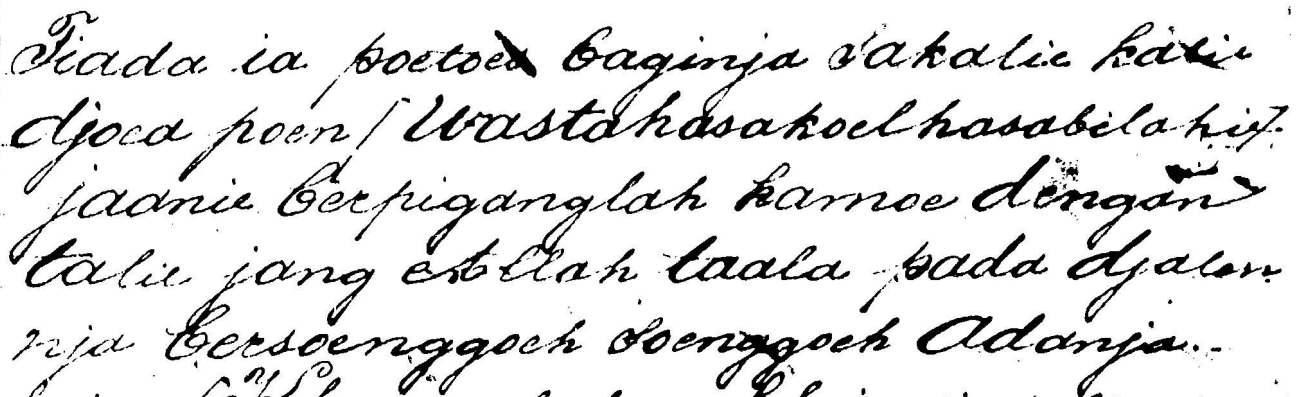 Tiada ia poetoes baginja sakalie kalie
djoea poen / Wastahasakoelhasabilahie /.
jaanie berpiganglah kamoe dengan
talie jang Allah taala pada djalan
nja bersoenggoeh soenggoeh Adanja.-